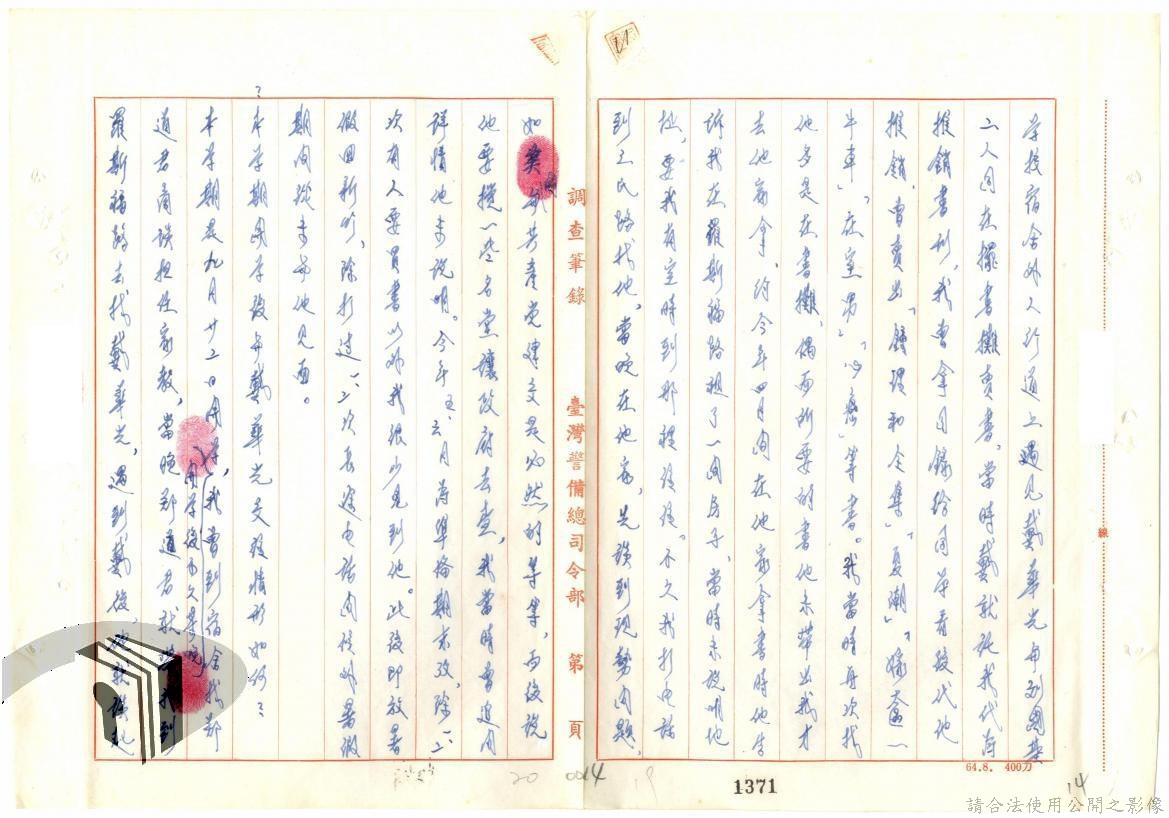 學校宿舍外人行道上遇見戴華光與劉國基
二人同在擺書攤賣書，當時戴就託我代為
推銷書刊，我曾拿目錄給同學看後代他
推銷，曾賣出「鍾理和全集」「夏潮」「嫁粧一
牛車」「在室男」「等書。我當時再次找
他多是在書攤，偶而所要的書他未帶出我才
去他家拿，約今年四月間在他家拿書時他告
訴我在羅斯福路租了一間房子，當時未說明地
址，要我有空時到那裡談談。不久我打電話
到三民路找他，當晚在他家，先談到現勢問題，
如 共產黨建交是必然的等等，而後說
他要攪一些名堂讓政府去查，我當時曾追問
詳情他未說明。今年五、六月為準備期末攷，除一二
次有人要買書以外我很少見到他。此後即放暑
假回新竹，除打過一、二次長途電話問候外暑假
期間從未與他見面。
問：本學期開學後與戴華光交往情形如何？
本學期是九月廿二日開學，我曾到宿舍找鄭
開學後不久某晚
道君商談担任家教，當晚鄭道君就帶我到
羅斯福路去找戴華光，遇到戴後，
調查筆錄
臺灣警備總司令部
第 頁
線
64.8. 400刀
1371
0014
20
19
14
請合法使用公開之影像